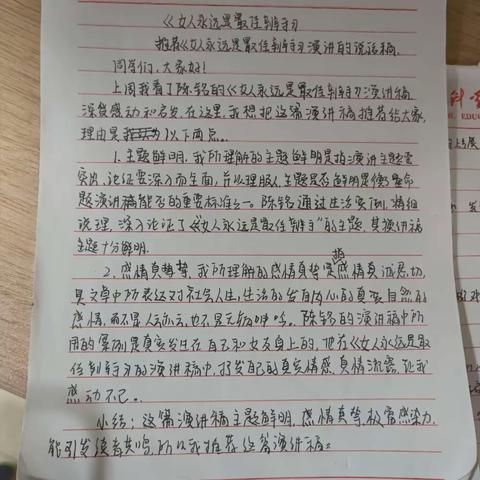 《女人永远是最佳辩手》
推荐《女人永远是最佳辩手》演讲的说话稿
同学们,大家好!
上周我看了陈铭的《女人永远是最佳辩手》演讲稿,
深受感动和启发,在这里,我想把这篇演讲稿推荐给大家,
理由是以下两点。
1.主题鲜明,我所理解的主题鲜明是指演讲主题
突出,论证要深入而全面,并以理服人,主题是否鲜明是衡量命
题演讲稿能否的重要标准之一。陈铭通过生活实例,精细
说理,深入论证了《女人永远是最佳辩手》的主题,其演讲稿
主题十分鲜明.
2.感情真挚,我所理解的感情真挚是感情真诚恳切,
是文章中所表达对社会人生,生活的发自内心的真实自然的
感情,而不是人云亦云,也不是无病呻吟。陈铭的演讲稿中所
用的案例是真实发生在自己和女友身上的,他在《女人永远是最
佳辩手》的演讲稿中,抒发自己的真实情感,真情流露,让我
感动不已。
小结:这篇演讲稿主题鲜明,感情真挚,极富感染力,
能引发读者共鸣,所以我推荐这篇演讲稿。
EDUC